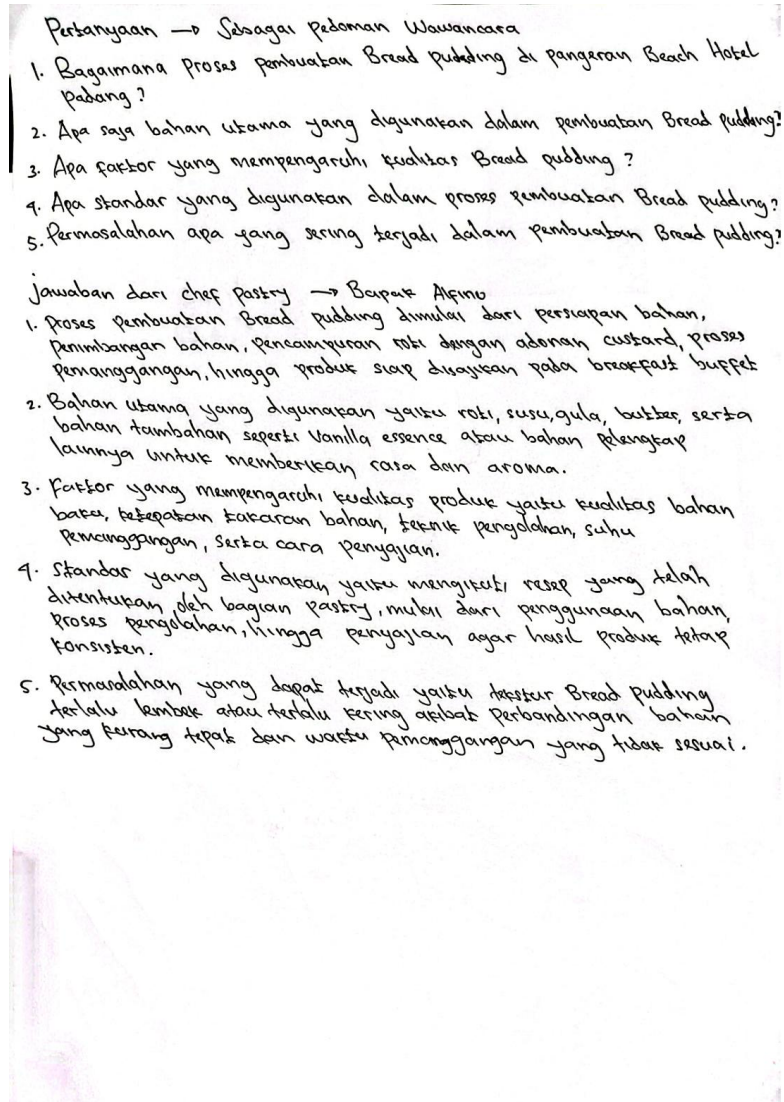 Pertanyaan → Sebagai pedoman Wawancara
1. Bagaimana proses pembuatan Bread pudding di pangeran Beach Hotel
padang?
2. Apa saja bahan utama yang digunakan dalam pembuatan Bread pudding?
3. Apa faktor yang mempengaruhi kualitas Bread pudding?
4. Apa standar yang digunakan dalam proses pembuatan Bread pudding?
5. Permasalahan apa yang sering terjadi dalam pembuatan Bread pudding?
jawaban dari chef pastry → Bapak Alfino
1. proses pembuatan Bread pudding dimulai dari persiapan bahan,
penimbangan bahan, pencampuran roti dengan adonan custard, proses
pemanggangan, hingga produk siap disajikan pada breakfast buffet
2. Bahan utama yang digunakan yaitu roti, susu, gula, butter, serta
bahan tambahan seperti Vanilla essence atau bahan pelengkap
lainnya untuk memberikan rasa dan aroma.
3. Faktor yang mempengaruhi kualitas produk yaitu kualitas bahan
baku, ketepatan takaran bahan, teknik pengolahan, suhu
pemanggangan, serta cara penyajian.
4. Standar yang digunakan yaitu mengikuti resep yang telah
ditentukan oleh bagian pastry, mulai dari penggunaan bahan,
proses pengolahan, hingga penyajian agar hasil produk tetap
konsisten.
5. Permasalahan yang dapat terjadi yaitu tekstur Bread pudding
terlalu lembek atau terlalu kering akibat perbandingan bahan
yang kurang tepat dan waktu pemanggangan yang tidak sesuai.